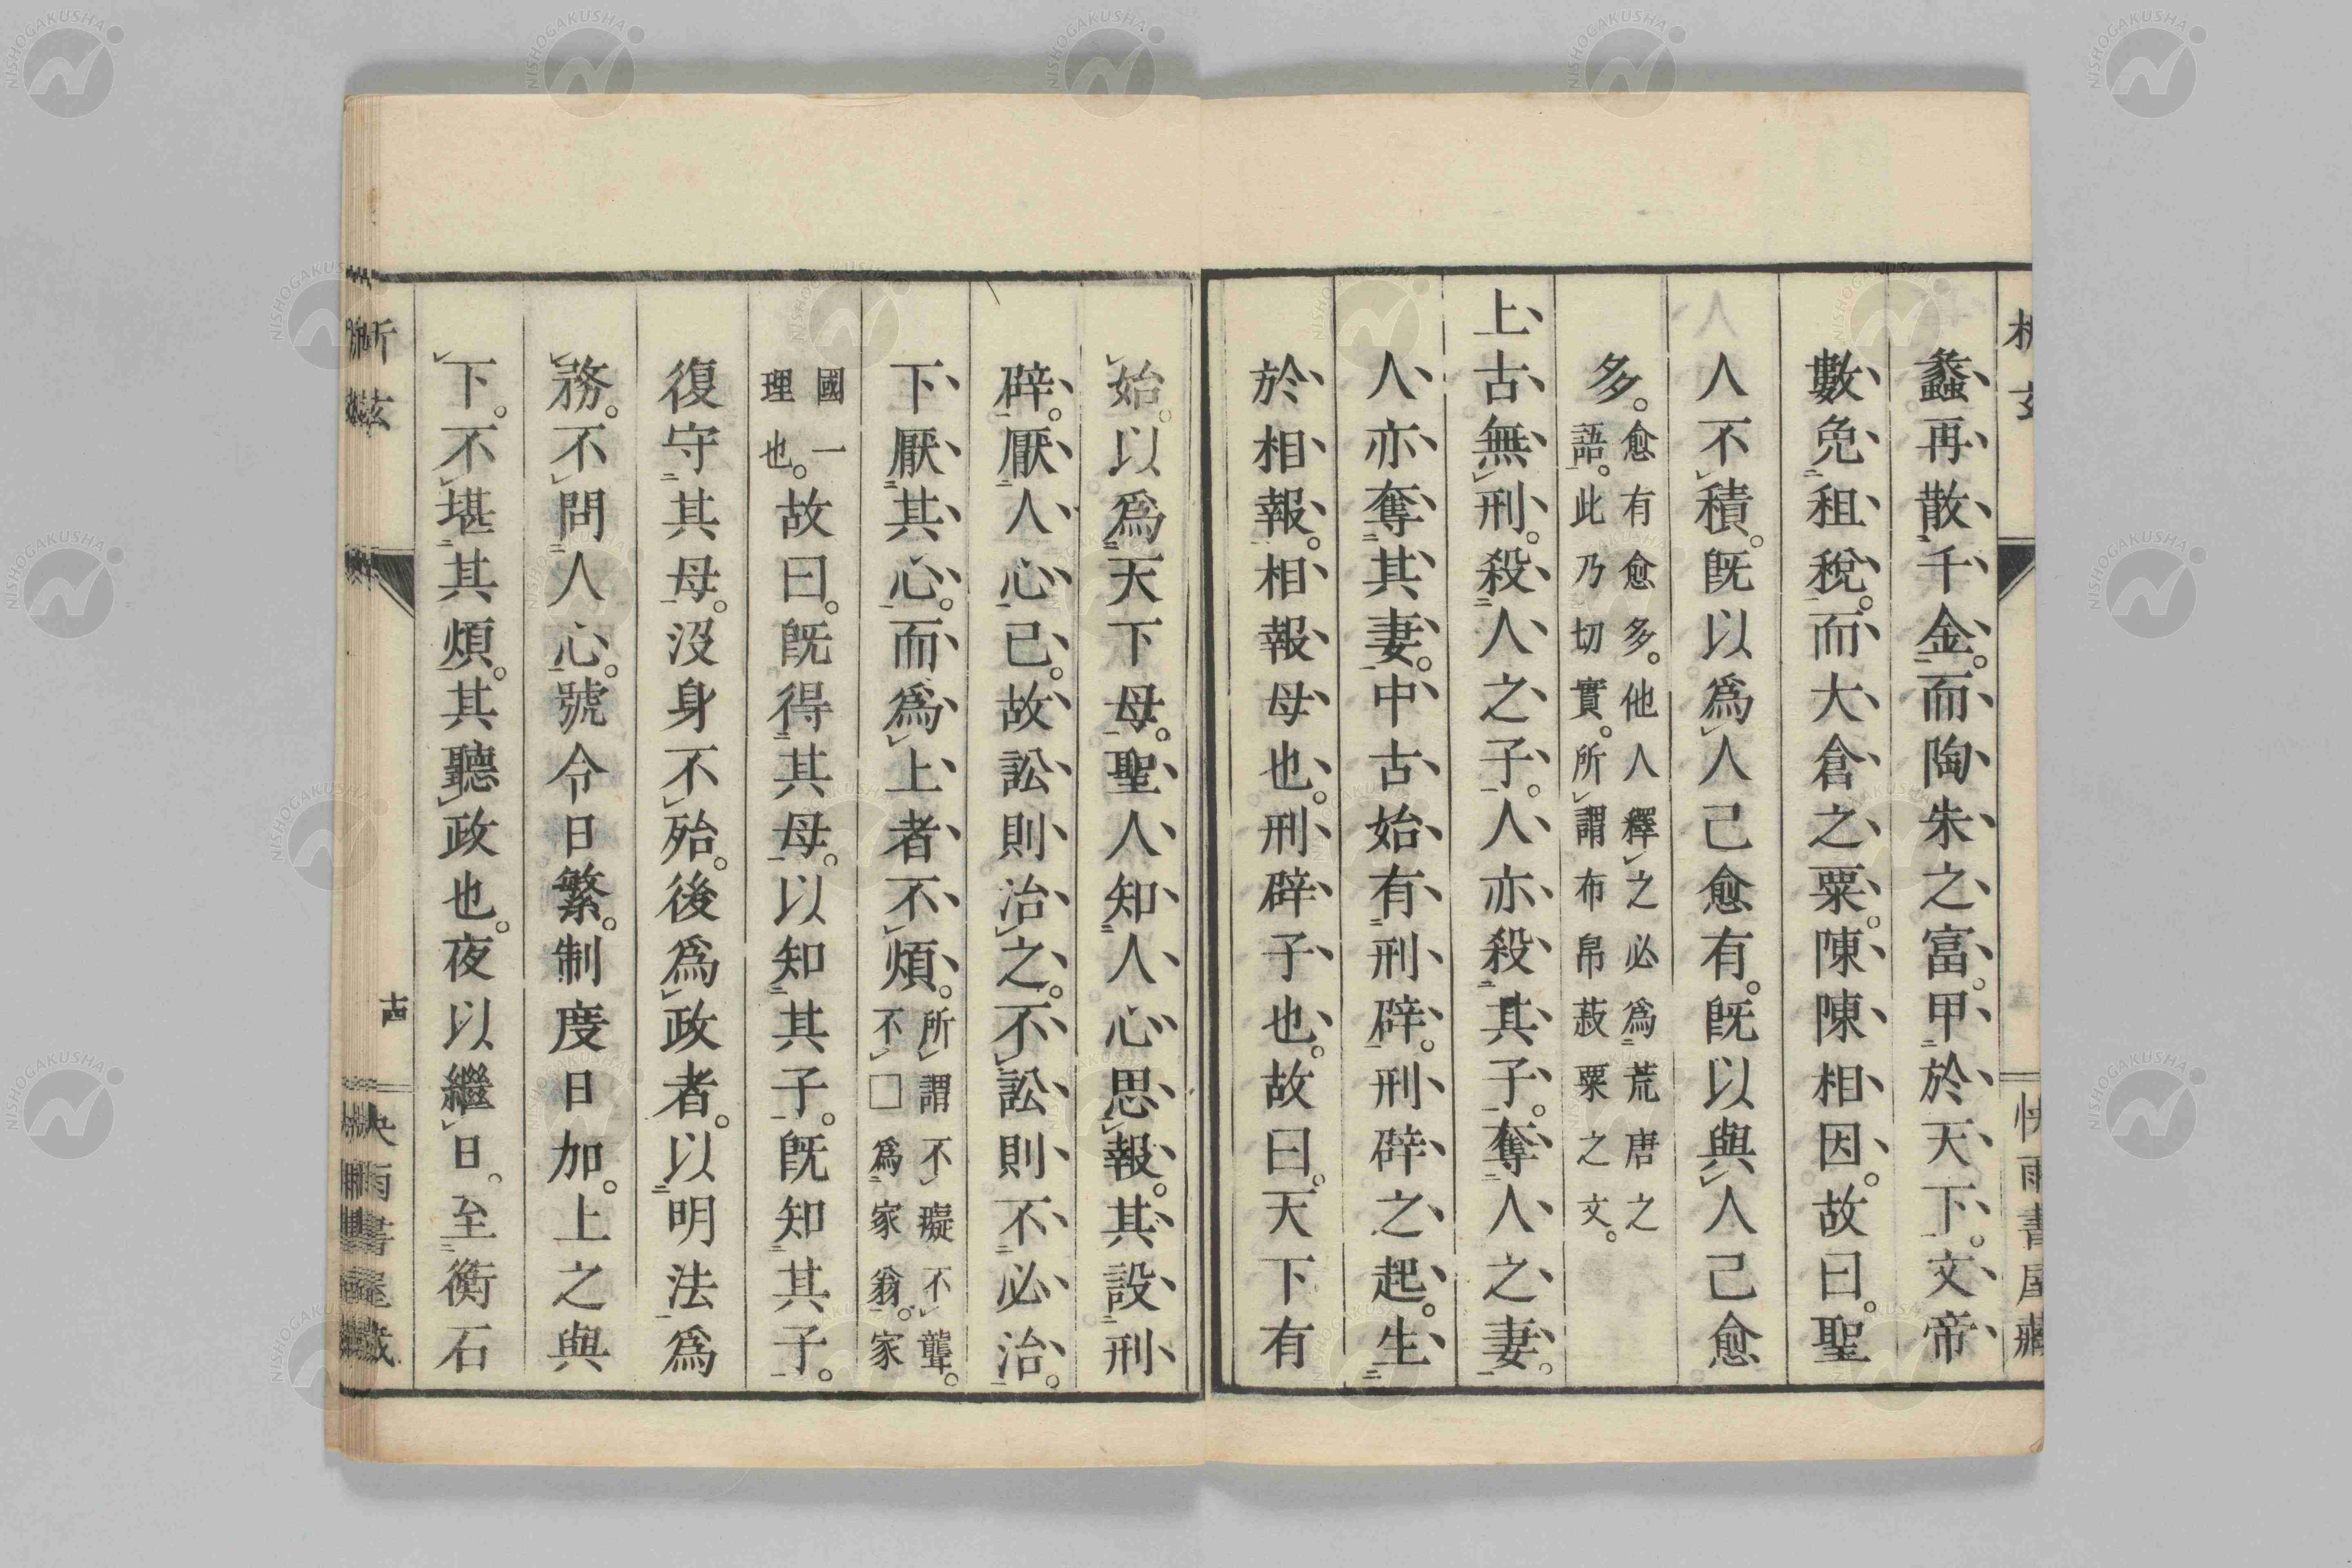 蠡再散千金。而陶朱之富。甲於天下。文帝
數免租稅。而大倉之粟。陳陳相因。故曰。聖
人不積。既以爲人己愈有。既以與人己愈
多。愈有愈多。他人釋之必爲荒唐之
語。此乃切實。所謂布帛菽粟之文。
上古無刑。殺人之子。人亦殺其子。奪人之妻。
人亦奪其妻。中古始有刑辟。刑辟之起。生
於相報。相報母也。刑辟子也。故曰。天下有
始。以爲天下母。聖人知人心思報。其設刑
辟。厭人心已。故訟則治之。不訟則不必治。
下厭其心。而爲上者不煩。所謂不癡不聾。
不□爲家翁。家
國一
理也。故曰。既得其母。以知其子。既知其子。
復守其母。沒身不殆。後爲政者。以明法爲
務。不問人心。號令日繁。制度日加。上之與
下。不堪其煩。其聽政也。夜以繼日。至衡石
析玄
快雨書屋藏
析玄
古
快雨書屋藏
NISHOGAKUSHA